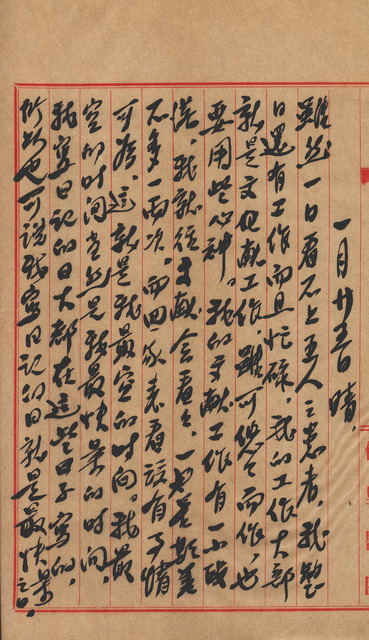 一月廿五日 晴,
雖然一日看不上五人之患者,我整
日還有工作而且忙碌,我的工作大部
就是文化献工作,雖可偬々而作,也
要用些心神。我的文献工作有一小段
落,我就往文献会看々,一也差
不多一两次,而回家患看設有了情
可夸,這就是我最空的时间。我最
空的时间当然是我最快乐的时间。
我寫日記的日大都在這些日子寫的,
所以也可说我寫日記的日就是最快乐之日。